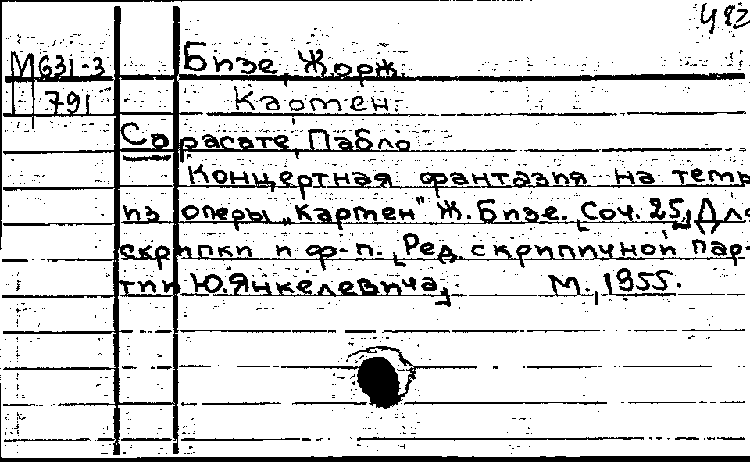 483
М631-3 Бизе, Жорж.
791 Кармен.
Сарасате, Пабло
Концертная фантазия на темы
из оперы „Кармен" Ж. Бизе. Соч. 25, Для
скрипки и ф-п. Ред. скрипичной пар-
тии Ю. Янкелевича. М., 1955.